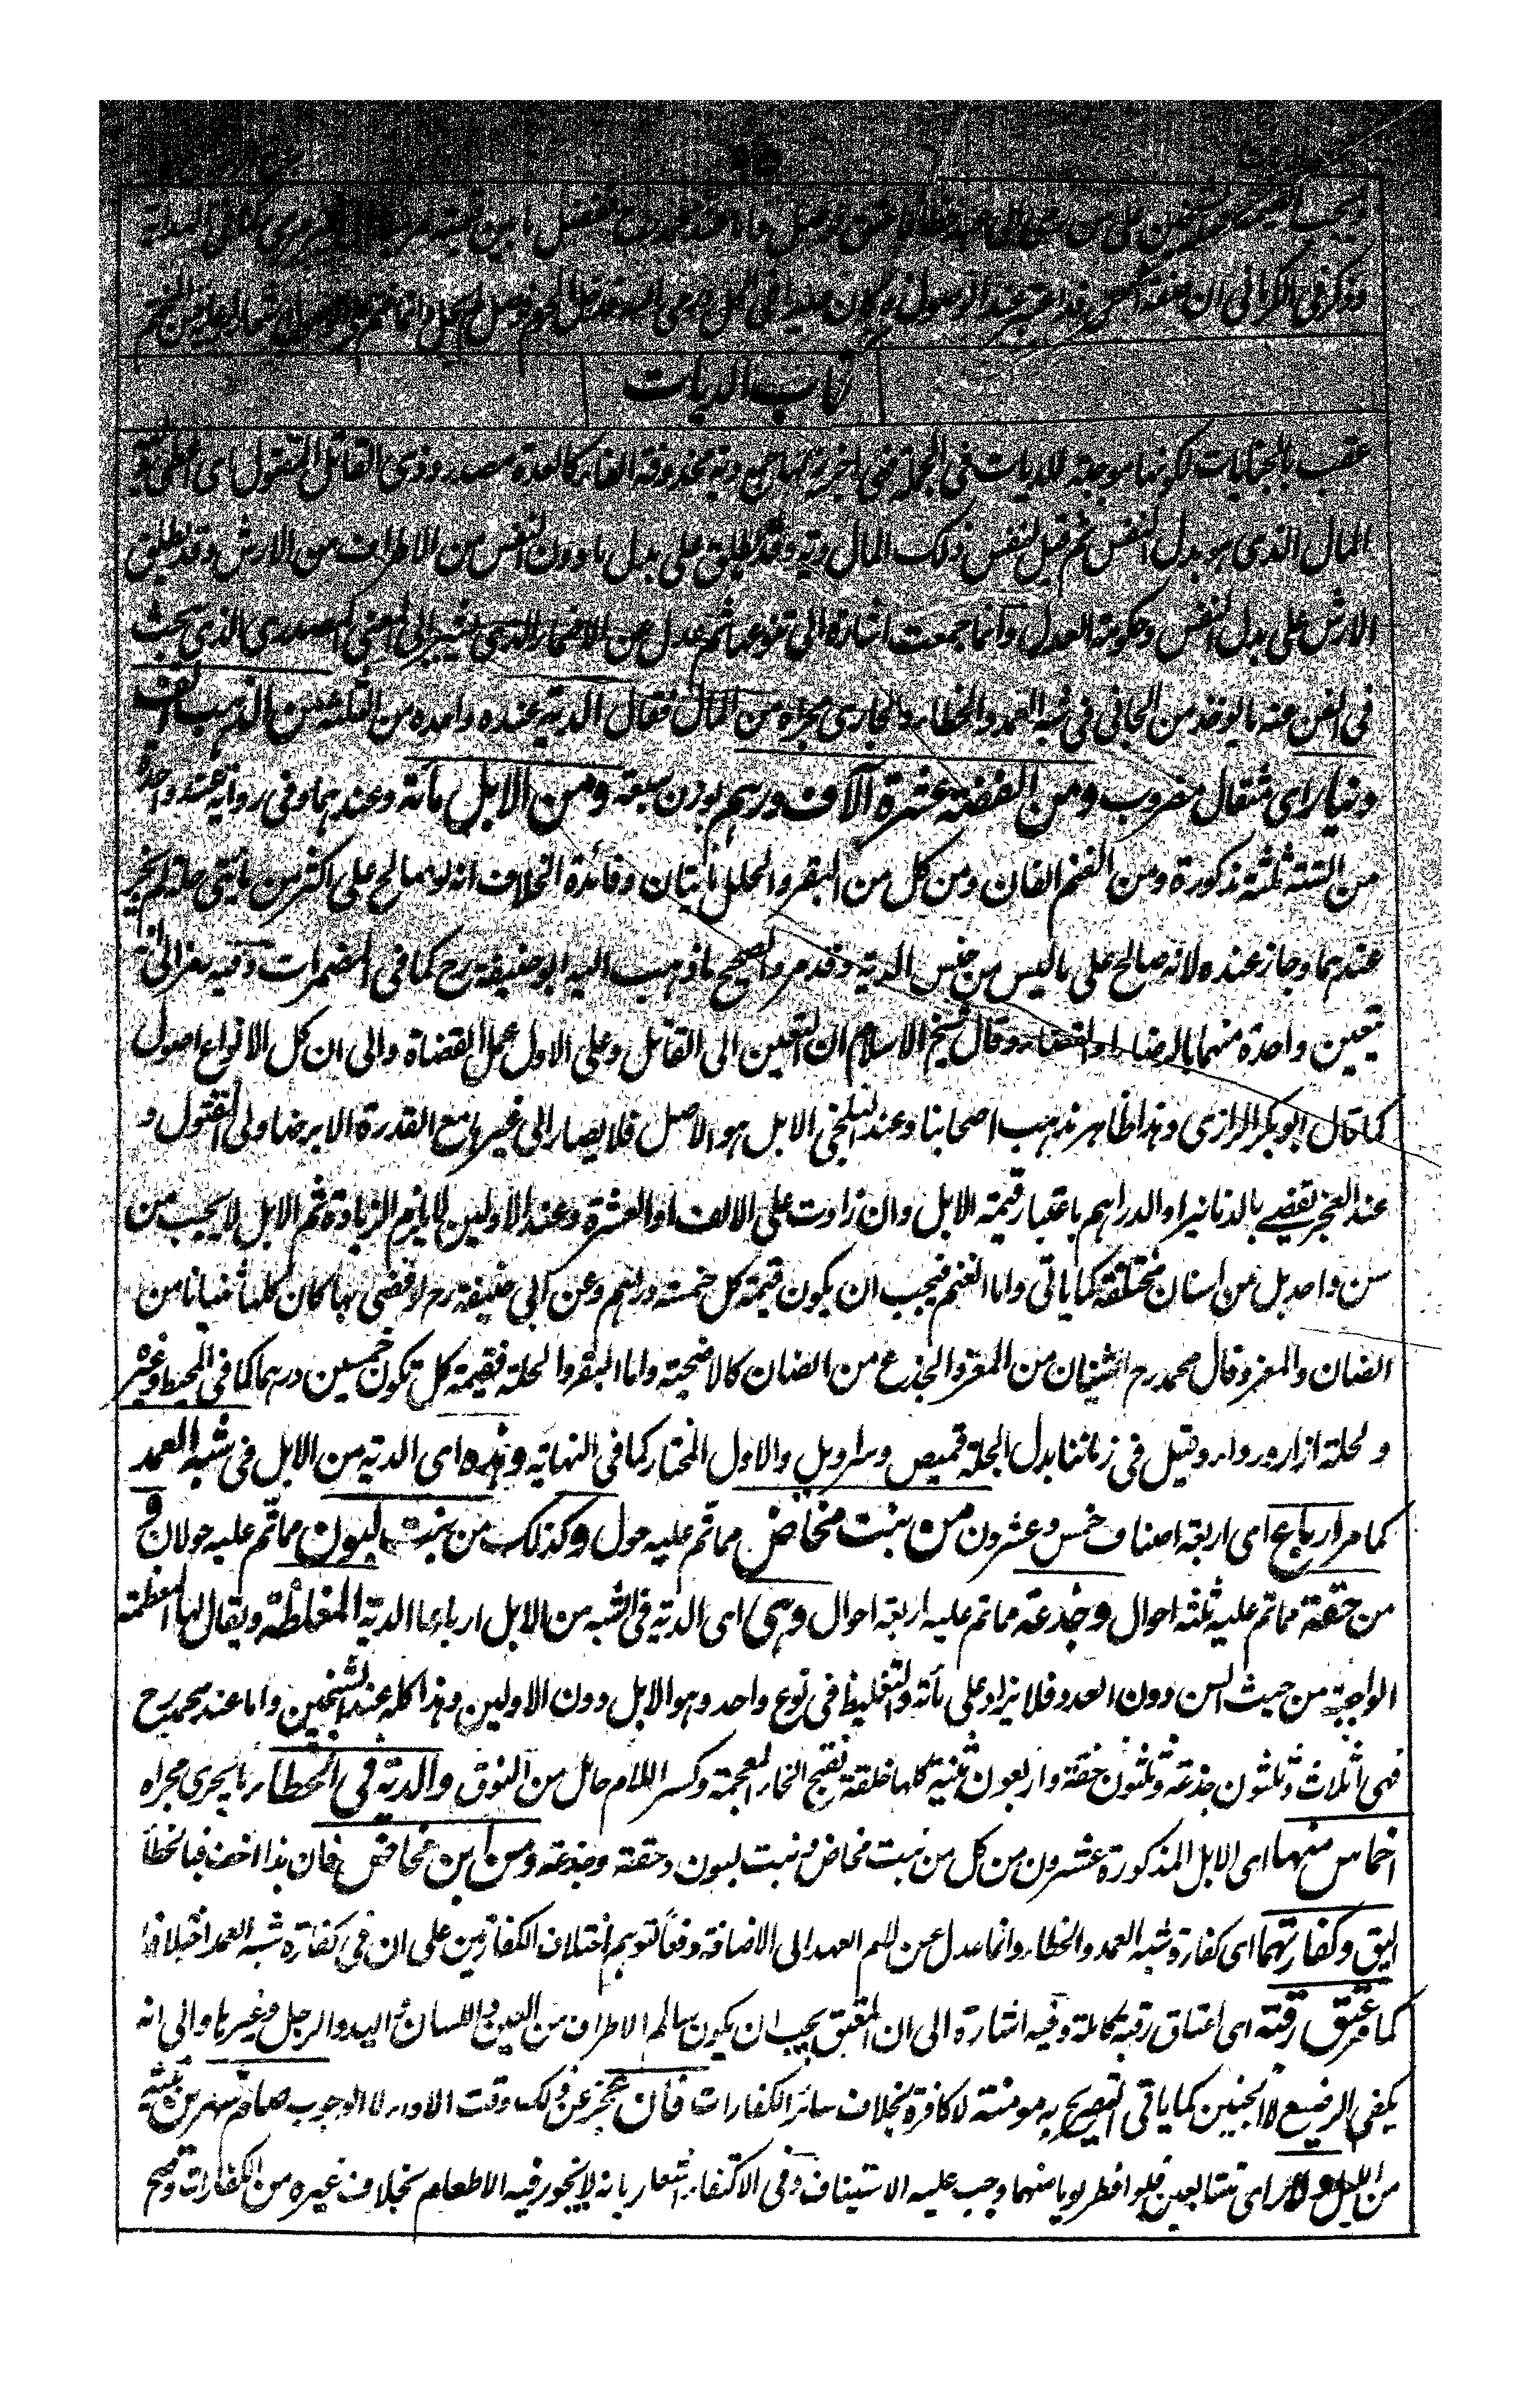 كتاب الديات
عقب بالجنايات لكونها موجبة للديات في الجملة فهي اجزية لها جمع دية محذوفة الفاء كالعدة مصدر ودى القاتل المقتول اى اعطى
المال الذى هو بدل النفس ثم قيل لنفس ذلك المال دية وقد يطلق على بدل ما دون النفس من الاطراف من الارش وقد يطلق
الارش على بدل النفس وحكومة العدل وانما جمعت اشارة الى تنوعها ثم عدل عن الاضمار الذى يشير الى المعنى المصدرى الذى يبحث
فى الفن عنه ما يوخذ من الجانى فى شبه العمد والخطاء والجارى مجراه من المال فقال الدية عنده واحدة من الثلثة من الذهب الف
دينار اى مثقال مضروب ومن الفضة عشرة آلاف درهم بوزن سبعة ومن الابل مأئة وعندهما وفى رواية عنه واحدة
من الستة ثلثة مذكورة ومن الغنم الفان ومن كل من البقر والحلل مائتان وفائدة الخلاف انه لو صالح على اكثر من مائتى حلة لم يجز
عندهما وجاز عنده لانه صالح على ما ليس من جنس الدية وقد مر والصحيح ما ذهب اليه ابو حنيفة رح كما فى المضمرات وفيه رمز الى انه
يتعين واحدة منهما بالرضاء او القضاء وقال شيخ الاسلام ان التعين الى القاتل وعلى الاول عمل القضاة والى ان كل الانواع اصول
كما قال ابو بكر الرازى وهذا ظاهر مذهب اصحابنا وعند البلخى الابل هو الاصل فلا يصار الى غيره مع القدرة الا برضا ولى المقتول و
عند العجز يقضى بالدنانير او الدراهم باعتبار قيمة الابل وان زادت على الالف او العشرة وعند الاولين لا يلزم الزيادة ثم الابل لا يجب من
سن واحد بل من اسنان مختلفة كما ياتى واما الغنم فيجب ان يكون قيمة كل خمسة دراهم وعن ابى حنيفة رح لو قضى بها كان كلها ثنيانا من
الضان والمعز وقال محمد رح الثنيان من المعز والجذع من الضان كالاضحية واما البقر والحلة فقيمة كل تكون خمسين درهما كما فى المحيط وغيره
والحلة ازار ورداء وقيل فى زماننا بدل الحلة قميص وسراويل والاول المختار كما فى النهاية وهذه اى الدية من الابل فى شبه العمد
كما مر ارباع اى اربعة اصناف خمس وعشرون من بنت مخاض مما تم عليه حول وكذلك من بنت لبون مما تم عليه حولان و
من حقة مما تم عليه ثلثة احوال وجذعة مما تم عليه اربعة احوال وهى اى الدية فى الشبه من الابل ارباعا الدية المغلظة ويقال لها المعظمة
الواجبة من حيث السن دون العدد فلا يزاد على مأئة والتغليظ فى نوع واحد وهو الابل دون الاولين وهذا كله عند الشيخين واما عند محمد رح
فهى اثلاث وثلثون جذعة وثلثون حقة واربعون ثنية كلها خلفة بفتح الخاء المعجمة وكسر اللام حامل من النوق والدية فى الخطاء وما يجرى مجراه
اخماس منها اى الابل المذكورة عشرون من كل من بنت مخاض و بنت لبون وحقة وجذعة ومن ابن مخاض فان هذا اخف فبالخطأ
اليق وكفارتهما اى كفارة شبه العمد والخطاء وانما عدل عن لام العهد الى الاضافة دفعا لتوهم اختلاف الكفارتين على ان فى كفارة شبه العمد اختلافا
كما مر عتق رقبة اى اعتاق رقبة كاملة وفيه اشارة الى ان المعتق يجب ان يكون سالم الاطراف من العين واللسان واليد والرجل وغيرها والى انه
يكفى الرضيع لا الجنين كما ياتى التصريح به مومنة لا كافرة بخلاف سائر الكفارات فان عجز عن ذلك وقت الاداء لا الوجوب صام شهرين
اى متتابعين فلو افطر يوما منهما وجب عليه الاستيناف وفى الاكتفاء اشعار بانه لا يجوز فيه الاطعام بخلاف غيره من الكفارات وصح